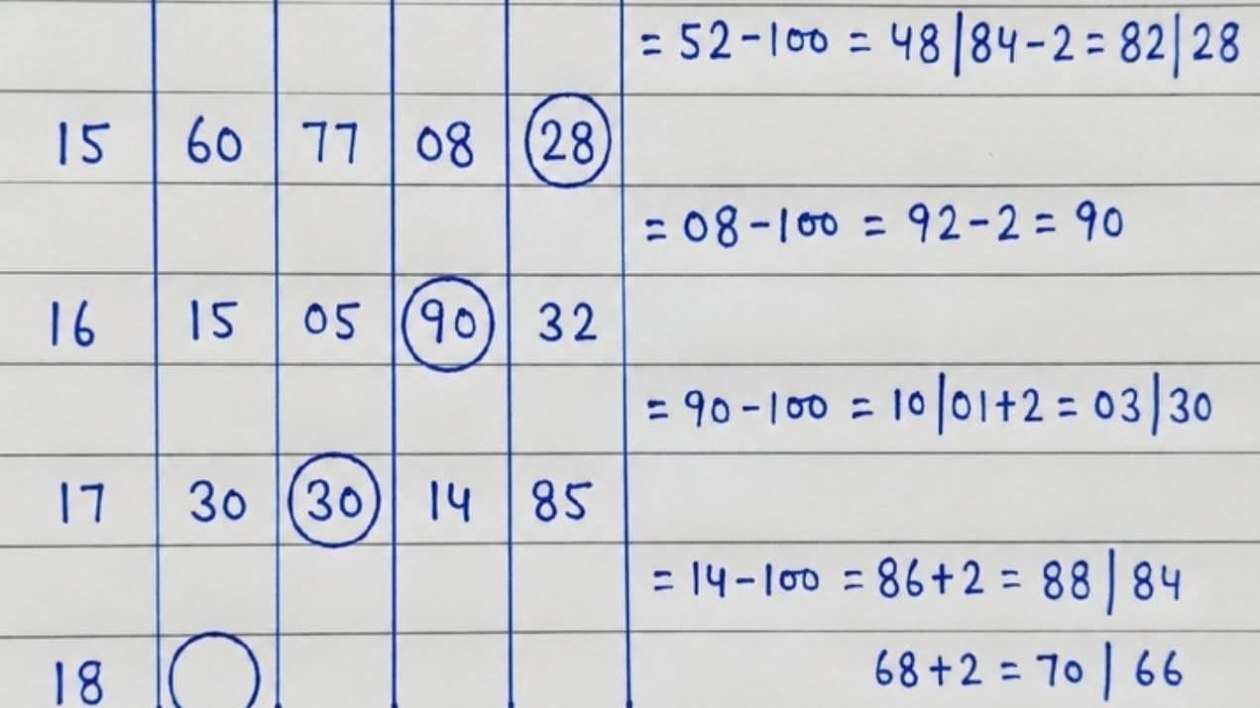 = 52-100 = 48|84-2 = 82|28
15 60 77 08 28
= 08-100 = 92-2 = 90
16 15 05 90 32
= 90-100 = 10|01+2 = 03|30
17 30 30 14 85
= 14-100 = 86+2 = 88 | 84
68+2 = 70 | 66
18